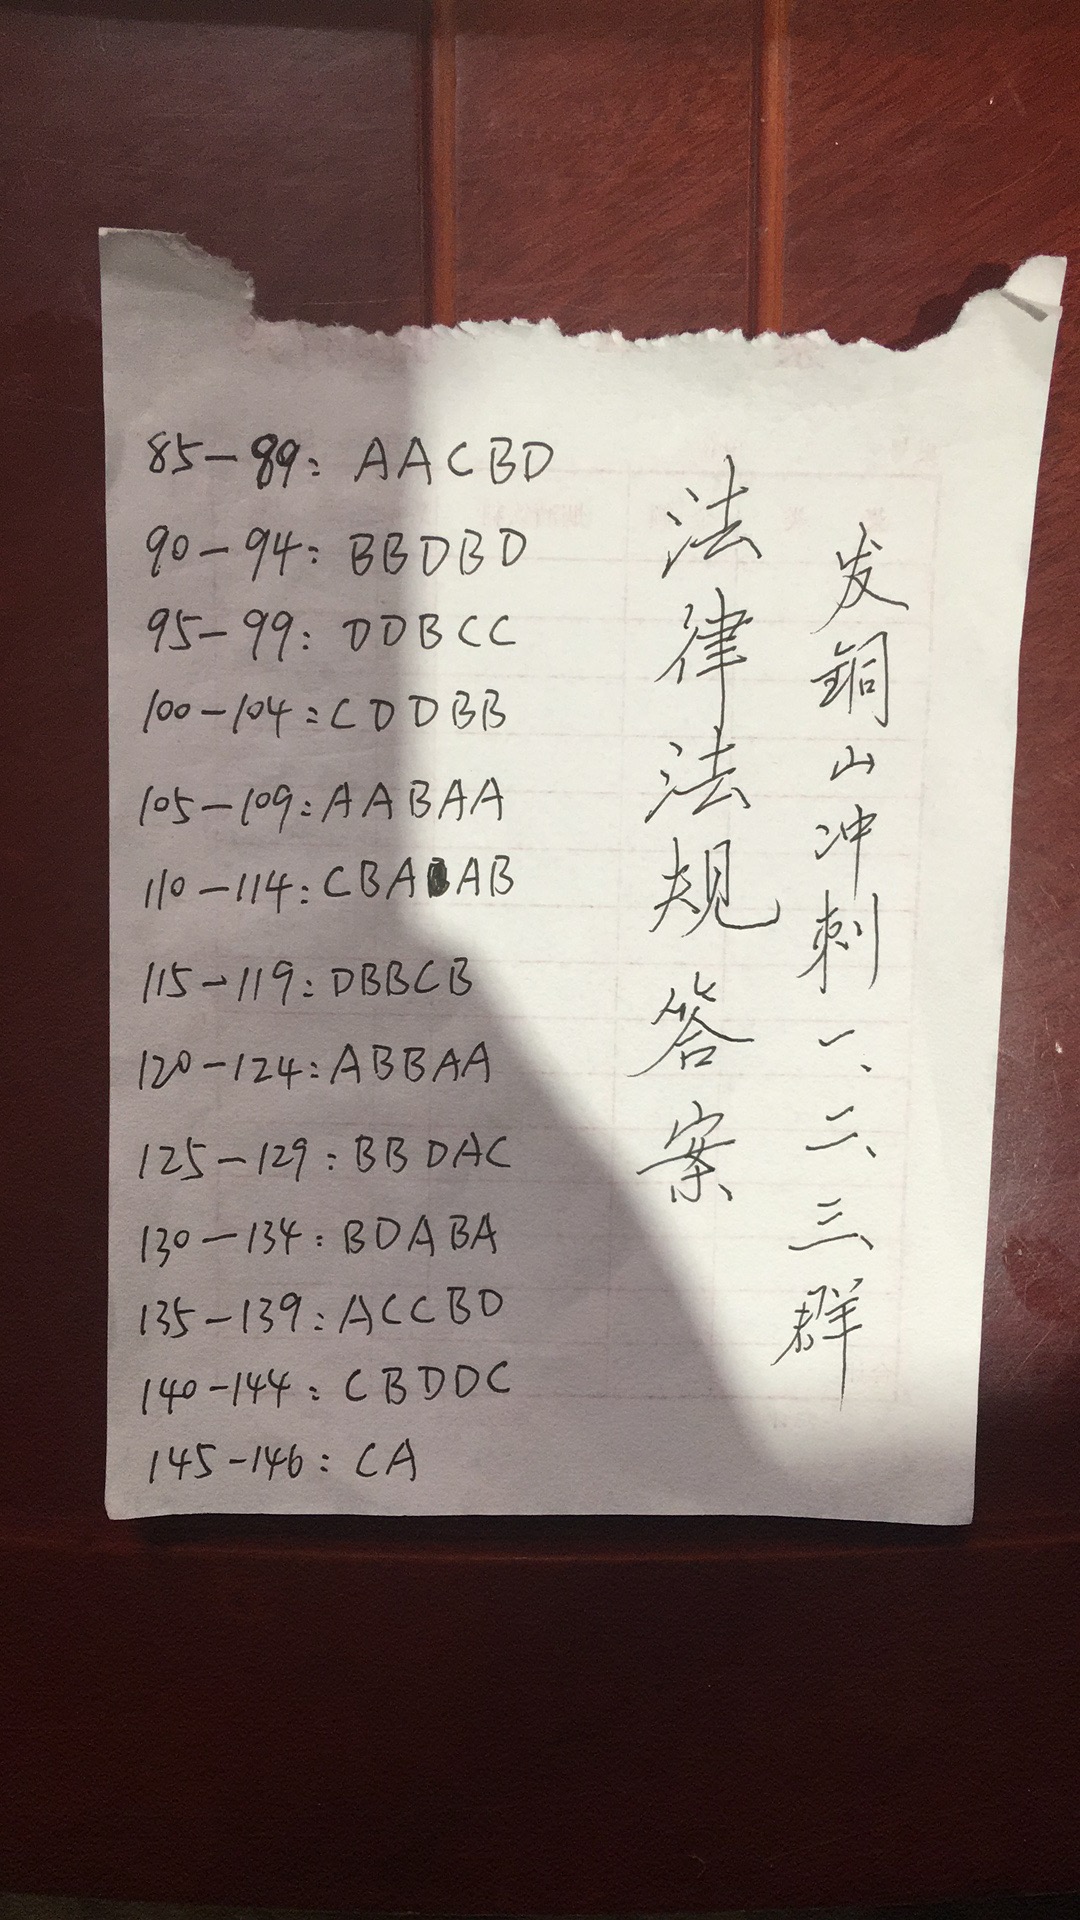 85-89: AACBD
90-94: BBDBD
95-99: DDBCC
100-104: CDDBB
105-109: AABAA
110-114: CBAAB
115-119: DBBCB
120-124: ABBAA
125-129: BBDAC
130-134: BDABA
135-139: ACCBD
140-144: CBDDC
145-146: CA
发铜山冲刺一、二、三群
法律法规答案